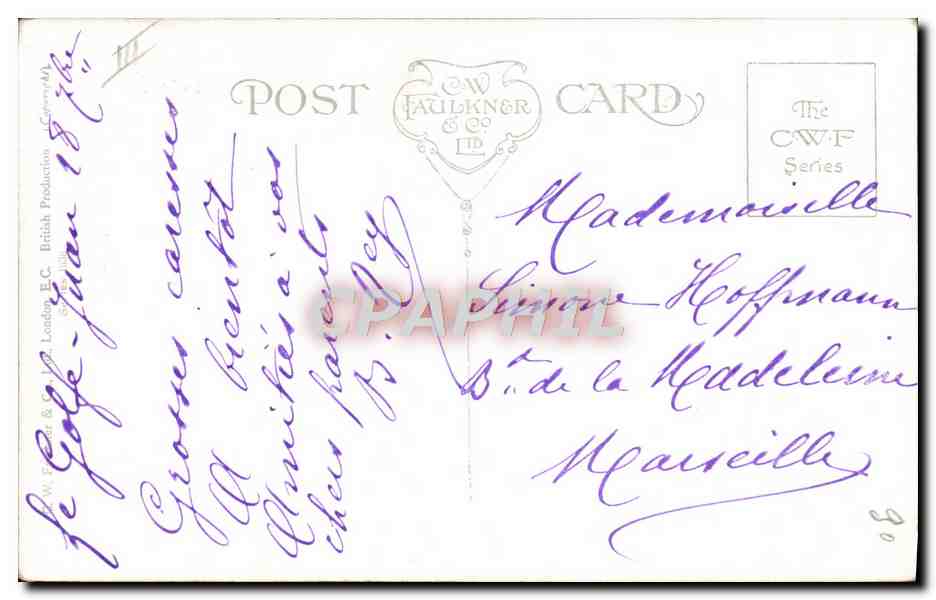 POST CARD
C.W. FAULKNER & Co. LTD
The
C.W.F
Series
C. W. Faulkner & Co., Ltd., London, E.C. British Production (Copyright)
Golfe-Juan 18 7bre
Grosses caresses
A bientôt
Amitiés à vos
chers parents
B.
Mademoiselle
Simone Hoffmann
Bd. de la Madeleine
Marseille
CPAPHIL
III
90